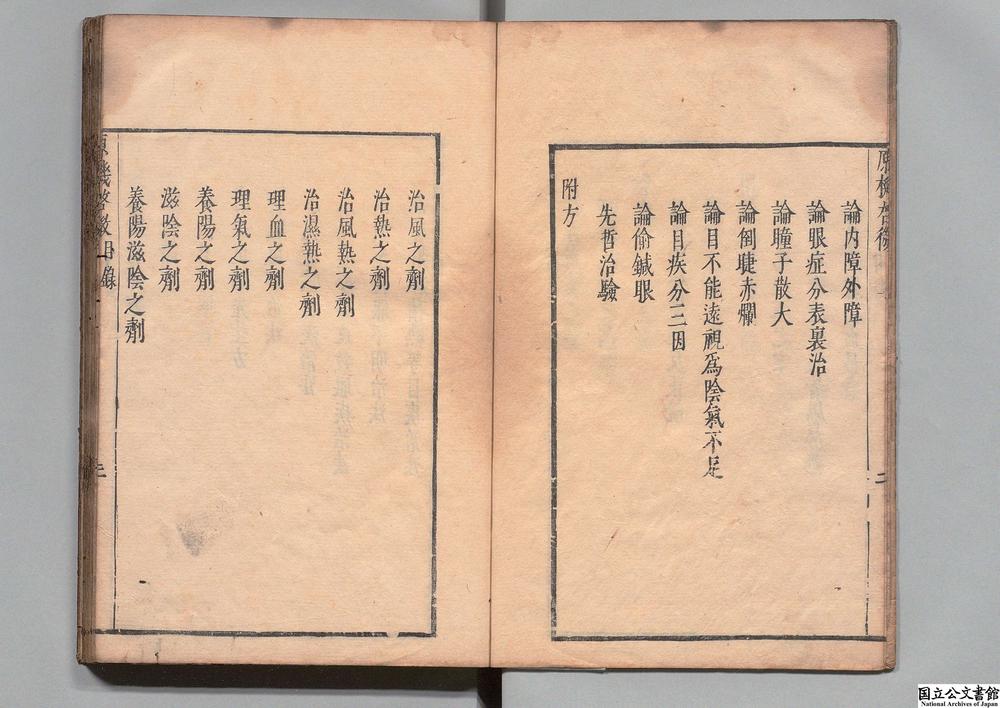 論内障外障
論眼症分表裏治
論瞳子散大
論倒睫赤爛
論目不能遠視爲陰氣不足
論目疾分三因
論偷鍼眼
先哲治驗
附方
二
治風之劑
治熱之劑
治風熱之劑
治濕熱之劑
理血之劑
理氣之劑
養陽之劑
滋陰之劑
養陽滋陰之劑
原機啓微目錄
国立公文書館
National Archives of Japan